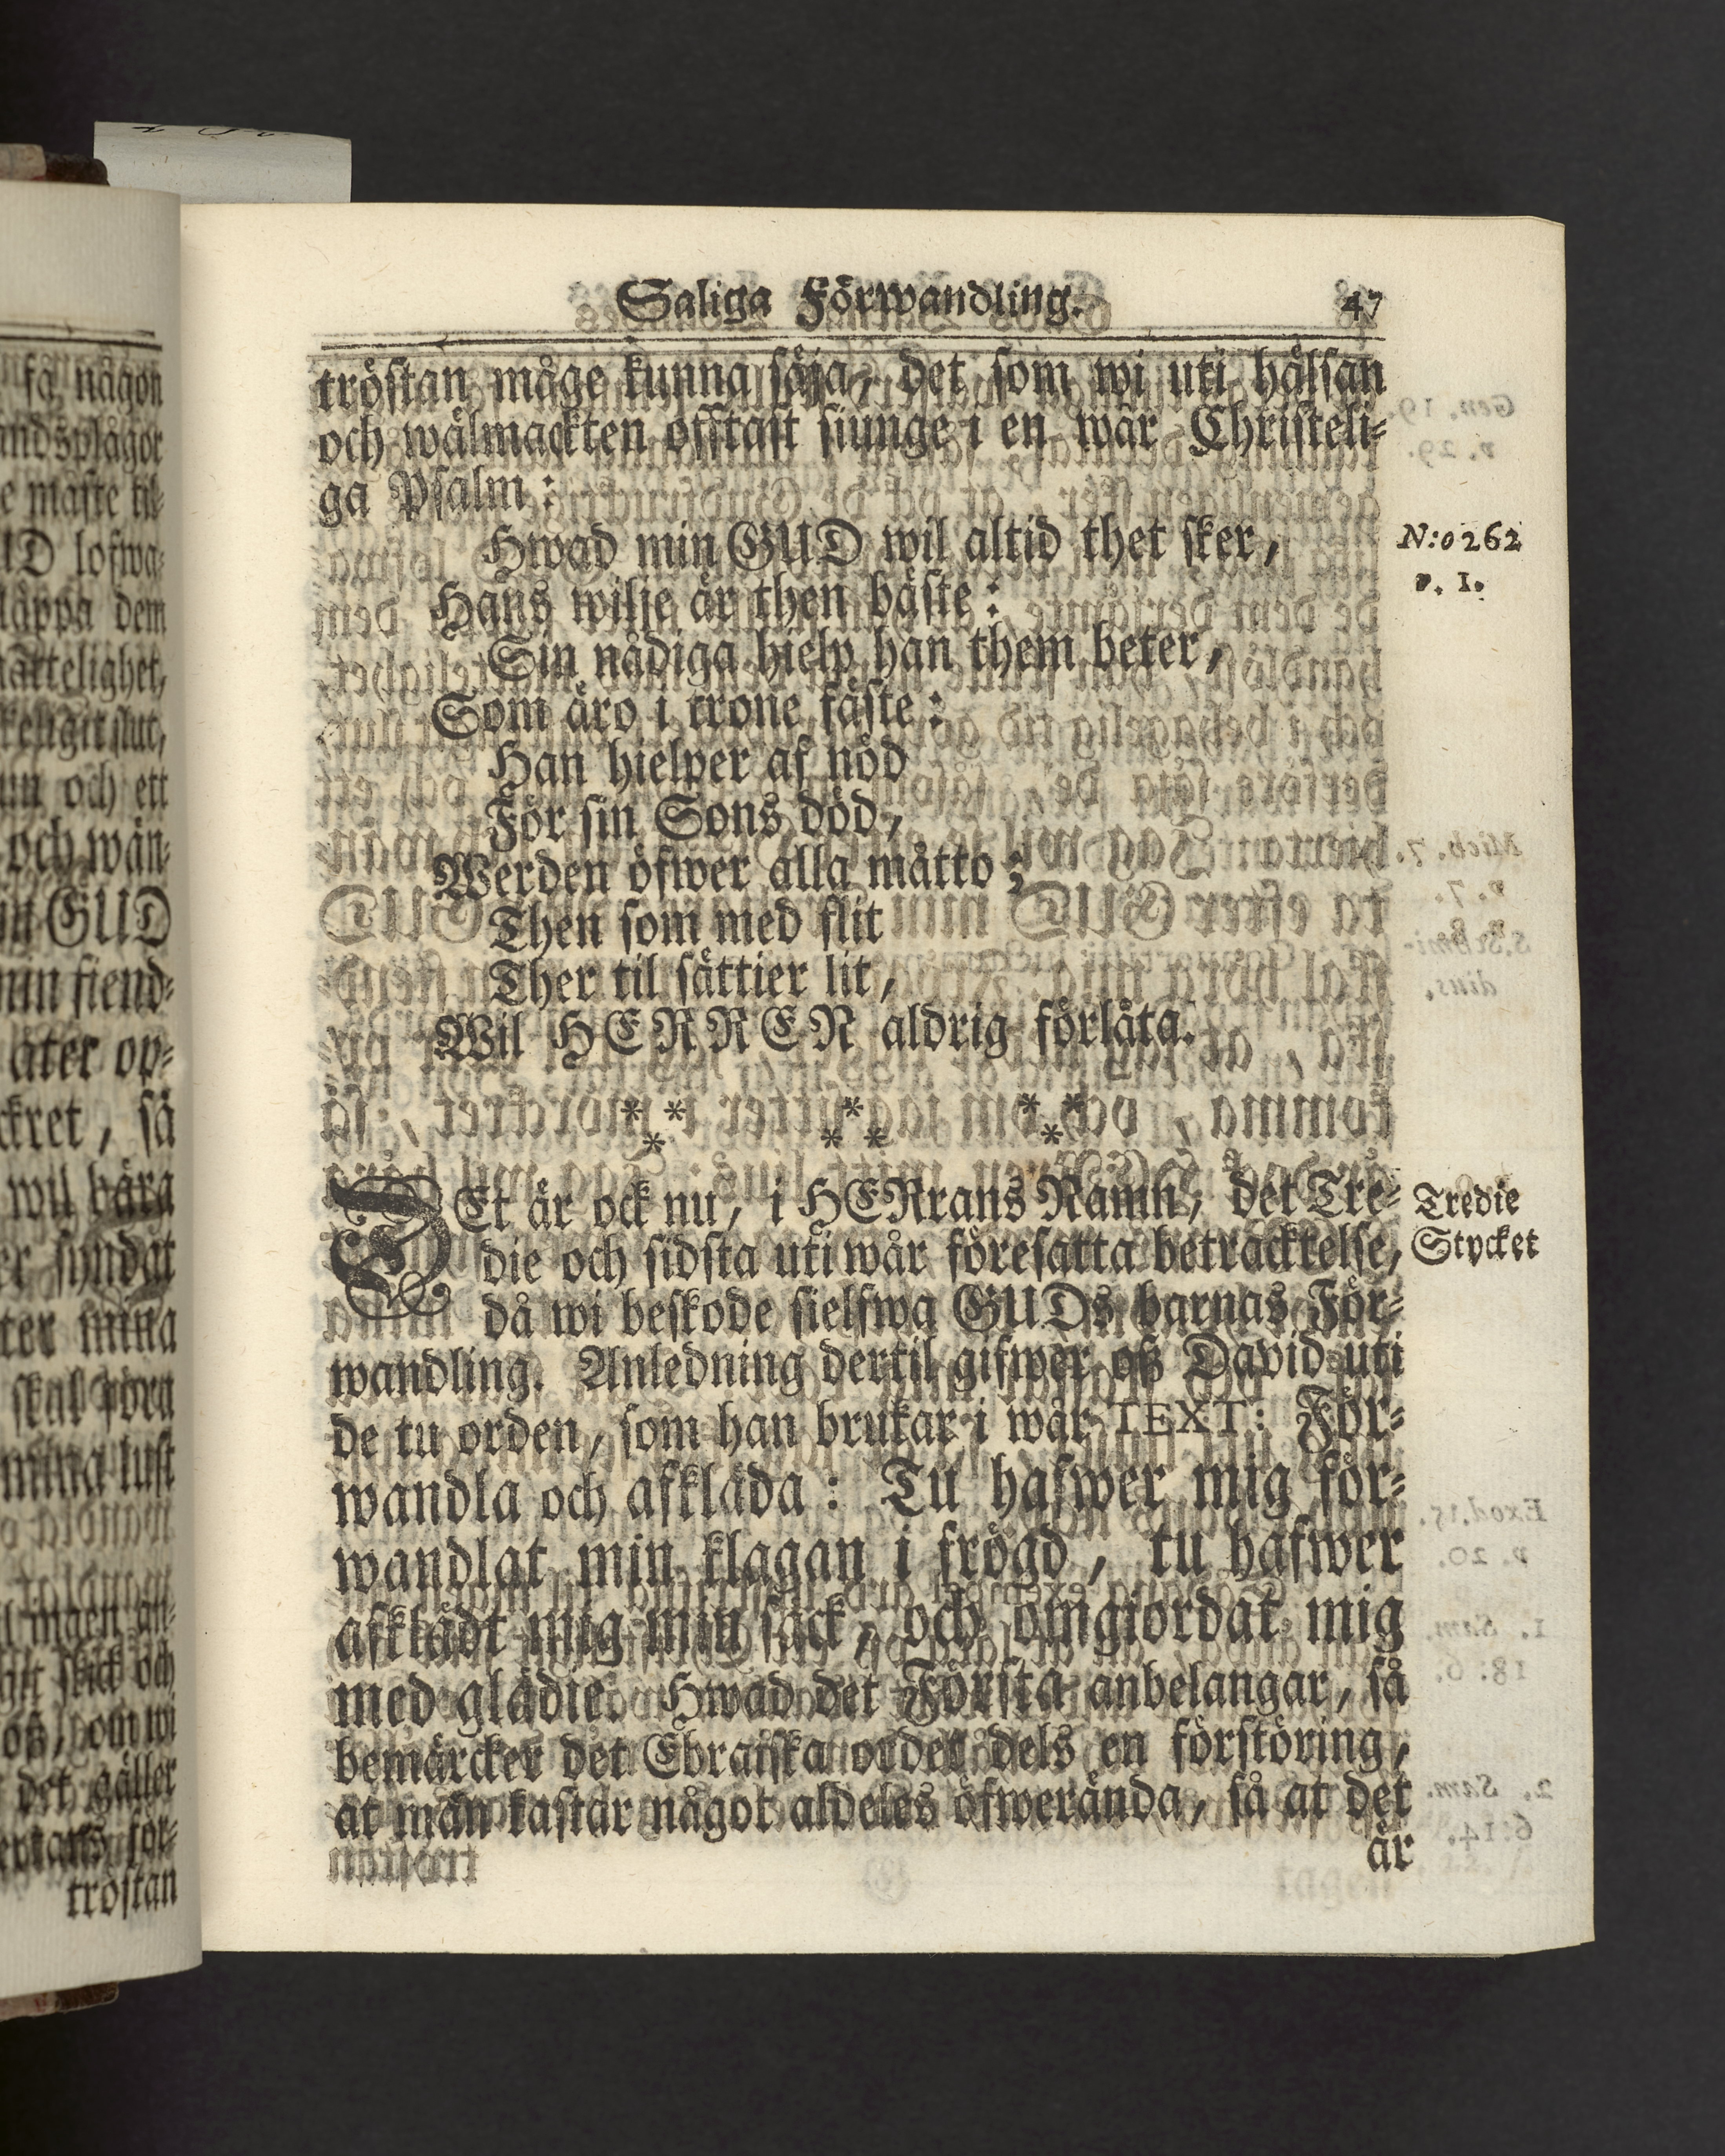 Saliga Förwandling. 47
tröstan måge kunna säja, det som wi uti hälsan
och wälmackten offtast siunge i en wår Christeli-
ga Psalm:
Hwad min GUD wil altid thet sker,
N:o 262
v. 1.
Hans wilje är then bäste:
Sin nådiga hielp han them beter,
Som äro i trone fäste:
Han hielper af nöd
För sin Sons död,
Werden öfwer alla måtto;
Then som med flit
Ther til sättier lit,
Wil HERREN aldrig förlåta.
* * * * *
* * * *
DEt är ock nu, i HERrans Namn, det Tre-
Tredie
Stycket
die och sidsta uti wår föresatta beträcktelse,
då wi beskode sielfwa GUDs barnas För-
wandling. Anledning dertil gifwer oß David uti
de tu orden, som han brukar i wår TEXT: För-
wandla och afkläda: Tu hafwer mig för-
wandlat min klagan i frögd, tu hafwer
afklädt mig min säck, och omgiordat mig
med glädie. Hwad det Första anbelangar, så
bemärcker det Ebraiska ordet dels en förstöring,
at man kastar något aldeles öfwerända, så at det
är
få någon
måste til-
UD lofwa-
släppa dem
och ett
och wän-
GUD
min fiend-
åter op-
så
wil bära
syndat
mina
mina lust
oß, om wi
det gäller
för-
tröstan